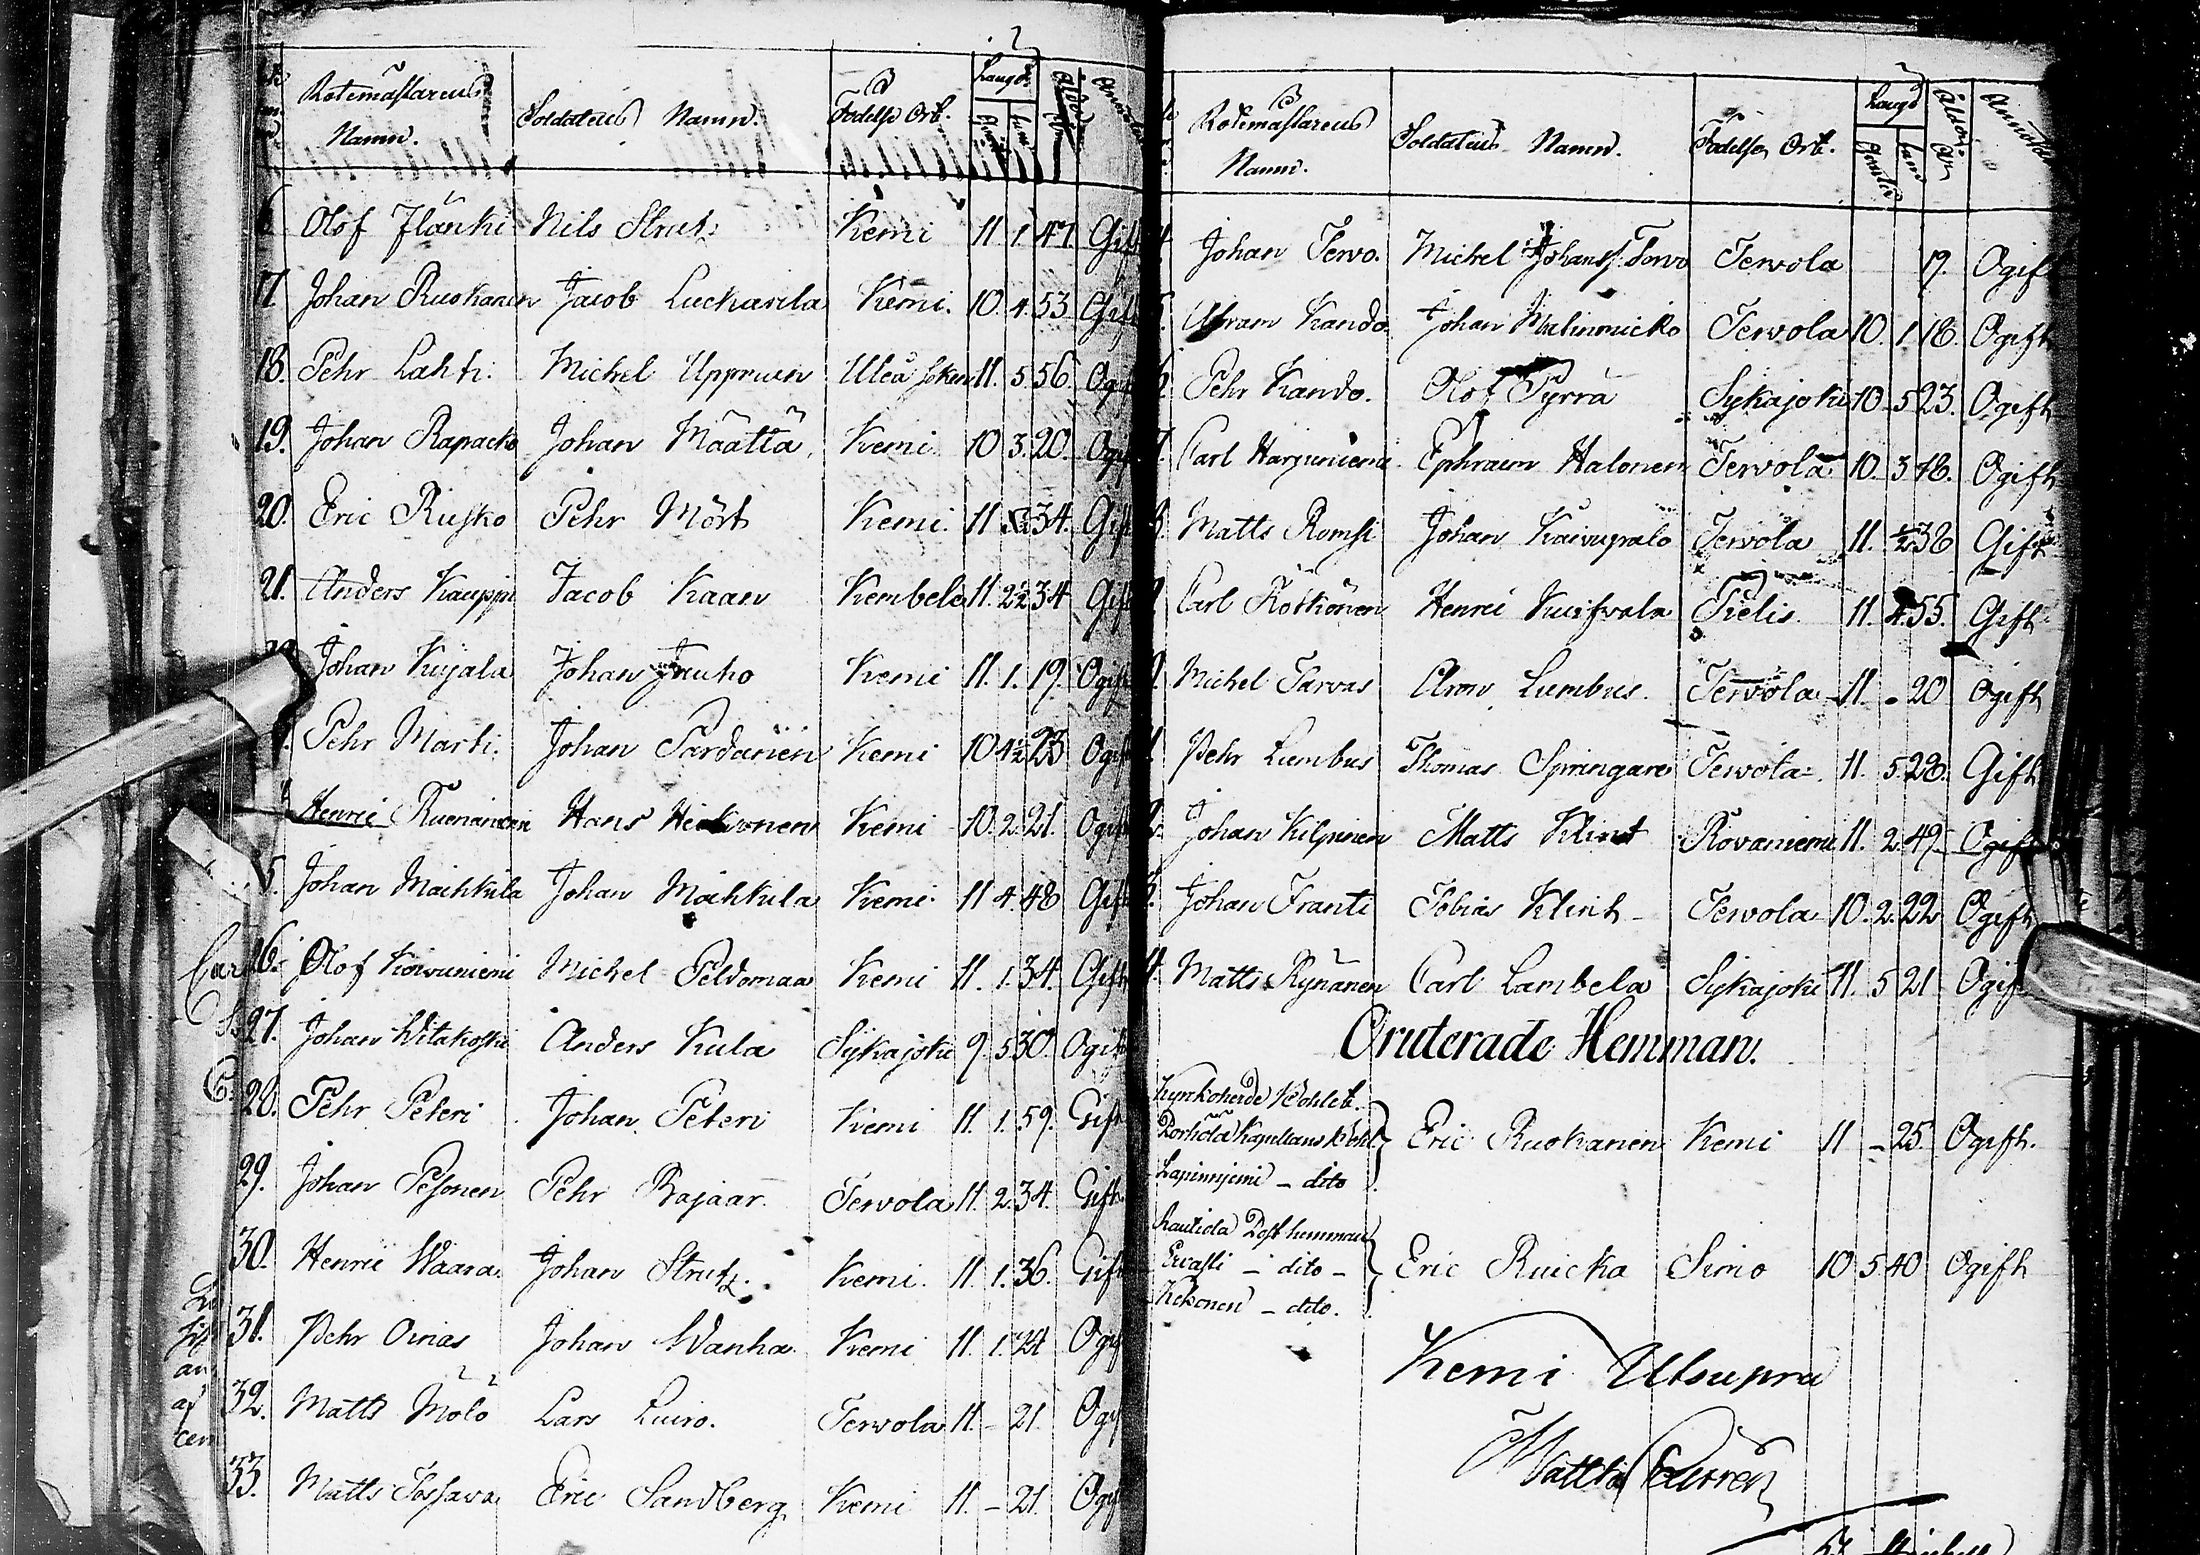 Rotemästarens Namn. Soldatens Namn. Födelse Ort. Längd
Olof Jlänki Nils Strutz Kemi 11 1. 47 Gift
17. Johan Ruokanen Jacob Luckarila Kemi. 10. 4. 53 Gift
18. Pehr Lahti. Michel Uppman Uleå soken 11. 5. 56. Ogift
19. Johan Rapacko Johan Määttä Kemi 10 3. 20. Ogift
20. Eric Rusko Pehr Mört Kemi. 11 34. Gift
21. Anders Kauppi Jacob Kaan Kembele 11. 2½ 34 Gift
Johan Kujala Johan Juuho Kemi 11. 1. 19. Ogift
Pehr Marti. Johan Pardanen Kemi 10 4½ 23 Ogift
Henric Hans Kemi 10. 2. 21. Ogift
5. Johan Maihkula Johan Maihkula Kemi 11 4. 48 Gift
26. Olof Koivuniemi Michel Peldomaa Kemi 11. 1. 34. Gift
27. Johan Witakoski Anders Kula Sijkajoki 9. 5 30. Ogift
28. Pehr Peteri Johan Peteri Kemi 11. 1. 59. Gift
29. Johan Pesonen Pehr Rajaar. Tervola 11. 2. 34. Gift
30. Henric Waara Johan Strutz. Kemi. 11. 1. 36. Gift
31. Pehr Oinas Johan Wanha Kemi 11. 1. 24 Ogift
32. Matts Mölö Lars Luiro. Tervola 11. - 21. Ogift
33. Matts Tossava Eric Sandberg Kemi 11. - 21. Ogift
Rotemästarens Namn. Soldatens Namn. Födelse Ort. Längd Ålder
Johan Tervo. Michel Johanss. Torvo Tervola 19. Ogift
Abram Kando Johan Malinmicko Tervola 10. 1. 18. Ogift
Pehr Kando. Olof Pyrrä Sijkajoki 10. 5 23. Ogift
7. Carl Harjuniemi Ephraim Halonen Tervola 10. 3 Ogift
Matts Romsi Johan Kaivupalo Tervola 11. ½ 38 Gift
Carl Kötkönen Henric Pielis. 11. 4. 55. Gift
Michel Tarvas Aron Lumbus. Tervola 11. - 20 Ogift
Pehr Lumbus Thomas Springare Tervola. 11. 5. 28. Gift
Johan Kilpinen Matts Klint Rovaniemi 11. 2. 49. Ogift
Johan Franti Tobias Klint - Tervola 10. 2. 22 Ogift
4. Matts Rynänen Carl Lambela Sijkajoki 11. 5 21 Ogift
Oruterade Hemman.
Kyrkoherde Bohlet.
Dorhola Kapellans Bohl. Eric Ruokanen Kemi 11 - 25 Ogift.
Lapinnjemi - dito
Rautiola Post hemman
Ervasti - dito - Eric Ruicka Simo 10 5 40 Ogift
Kekonen - dito.
Kemi Utsupra